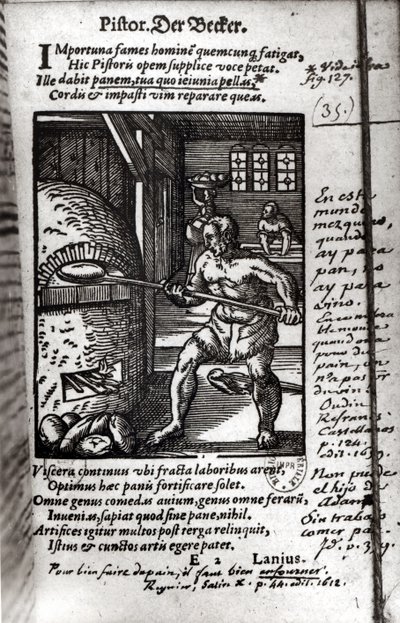 Pistor. Der Becker.
IMportuna fames hominẽ quemcunq; fatigat,
Hic Pistoris opem supplice voce petat.
Ille dabit panem, tua quo ieiunia pellas,*
Cordis & impasti vim reparare queas.
* Vide infra
fig. 127.
(35.)
En este
mundo
mezquino,
quando
ay para
pan, no
ay para
vino.
quand on a
pour du
pain, on
n'a pas pour
du vin.
Oudin
Refranes
Castellanos
p. 124.
edit. 1659.
Non puede
el hijo de
Adam
Sin trabajo
comer pan.
Viscera continuis vbi fracta laboribus arent,
Optimus hæc panis fortificare solet.
Omne genus comedas auium, genus omne ferarũ,
Inuenias, sapiat quod sine pane, nihil.
Artifices igitur multos post terga relinquit,
Istius & cunctos artis egere patet.
E 2 Lanius.
Pour bien faire du pain, il faut bien enfourner.
Regnier, Satire X. p. 44. edit. 1612.